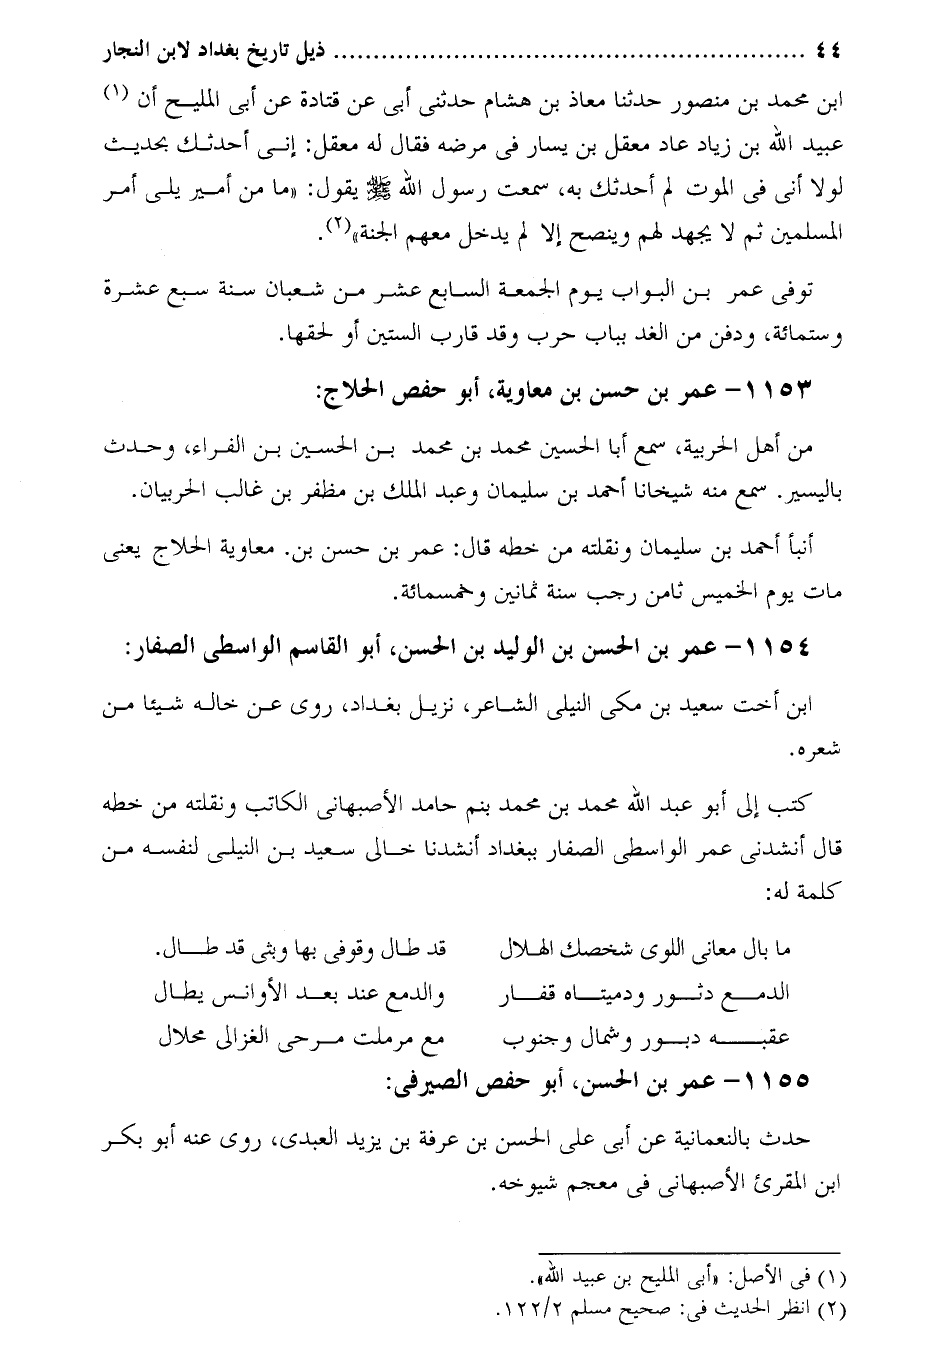 ٤٤ ........ ذيل تاريخ بغداد لابن النجار
ابن محمد بن منصور حدثنا معاذ بن هشام حدثنى أبى عن قتادة عن أبى المليح أن (١)
عبيد الله بن زياد عاد معقل بن يسار فى مرضه فقال له معقل: إنى أحدثك بحديث
لولا أنى فى الموت لم أحدثك به، سمعت رسول الله ﷺ يقول: «ما من أمير يلى أمر
المسلمين ثم لا يجهد لهم وينصح إلا لم يدخل معهم الجنة»(٢).
توفى عمر بن البواب يوم الجمعة السابع عشر من شعبان سنة سبع عشرة
وستمائة، ودفن من الغد بباب حرب وقد قارب الستين أو لحقها.
١١٥٣- عمر بن حسن بن معاوية، أبو حفص الحلاج:
من أهل الحربية، سمع أبا الحسين محمد بن محمد بن الحسين بن الفراء، وحدث
باليسير. سمع منه شيخانا أحمد بن سليمان وعبد الملك بن مظفر بن غالب الحربيان.
أنبأ أحمد بن سليمان ونقلته من خطه قال: عمر بن حسن بن. معاوية الحلاج يعنى
مات يوم الخميس ثامن رجب سنة ثمانين وخمسمائة.
١١٥٤- عمر بن الحسن بن الوليد بن الحسن، أبو القاسم الواسطى الصفار:
ابن أخت سعيد بن مكى النيلى الشاعر، نزيل بغداد، روى عن خاله شيئا من
شعره.
كتب إلى أبو عبد الله محمد بن محمد بنم حامد الأصبهانى الكاتب ونقلته من خطه
قال أنشدنى عمر الواسطى الصفار ببغداد أنشدنا خالى سعيد بن النيلى لنفسه من
كلمة له:
ما بال معانى اللوى شخصك الهلال قد طال وقوفى بها وبثى قد طال.
الدمع دثور ودميتاه قفار والدمع عند بعد الأوانس يطال
عقبه دبور وشمال وجنوب مع مرملت مرحى الغزالى محلال
١١٥٥- عمر بن الحسن، أبو حفص الصيرفى:
حدث بالنعمانية عن أبى على الحسن بن عرفة بن يزيد العبدى، روى عنه أبو بكر
ابن المقرئ الأصبهانى فى معجم شيوخه.
(١) فى الأصل: «أبى المليح بن عبيد الله».
(٢) انظر الحديث فى: صحيح مسلم ١٢٢/٢.